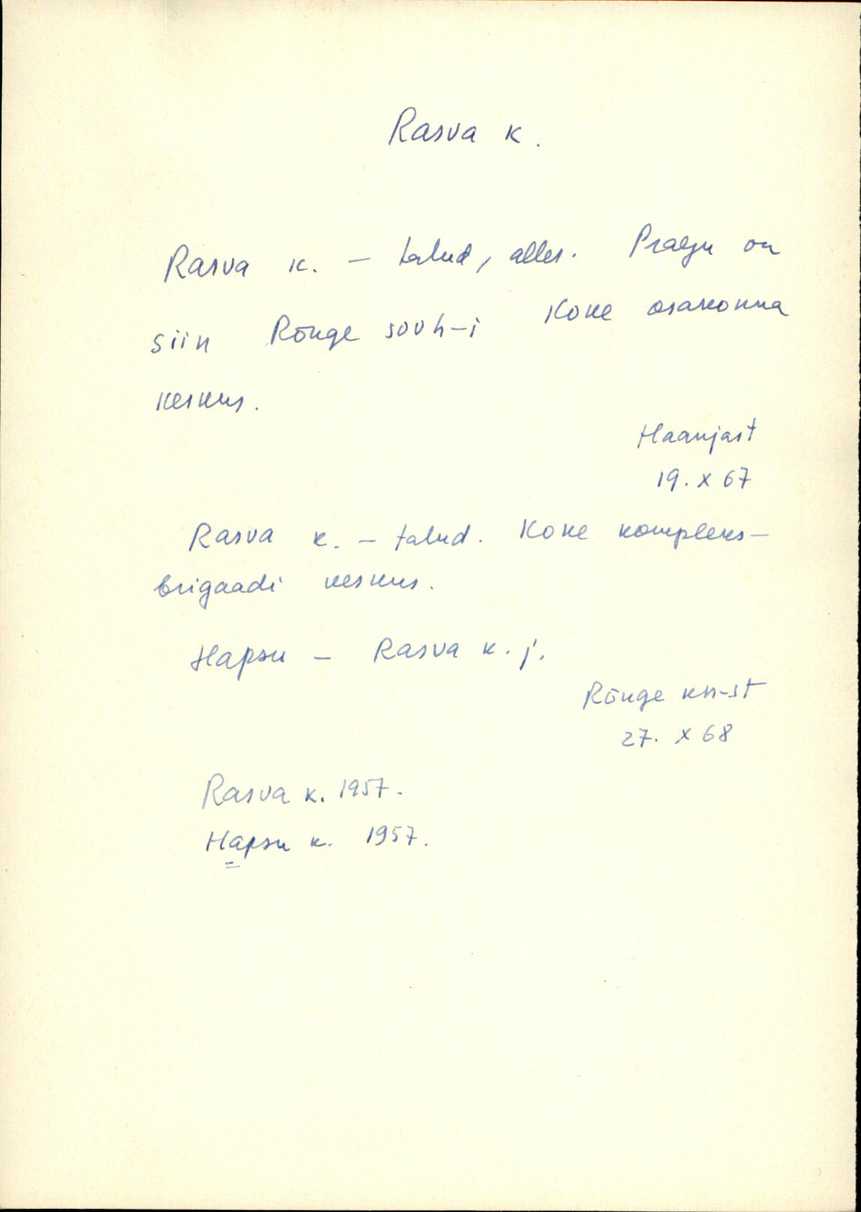 Rasva k.
Rasva k. – talud, alles. Praegu on
siin Rõuge sovh-i Koke osakonna
keskus.
Haanjast
19. X 67
Rasva k. – talud. Koke kompleks-
brigaadi keskus.
Hapsu – Rasva k. j.
Rõuge kn-st
27. X 68
Rasva k. 1957.
Hapsu k. 1957.